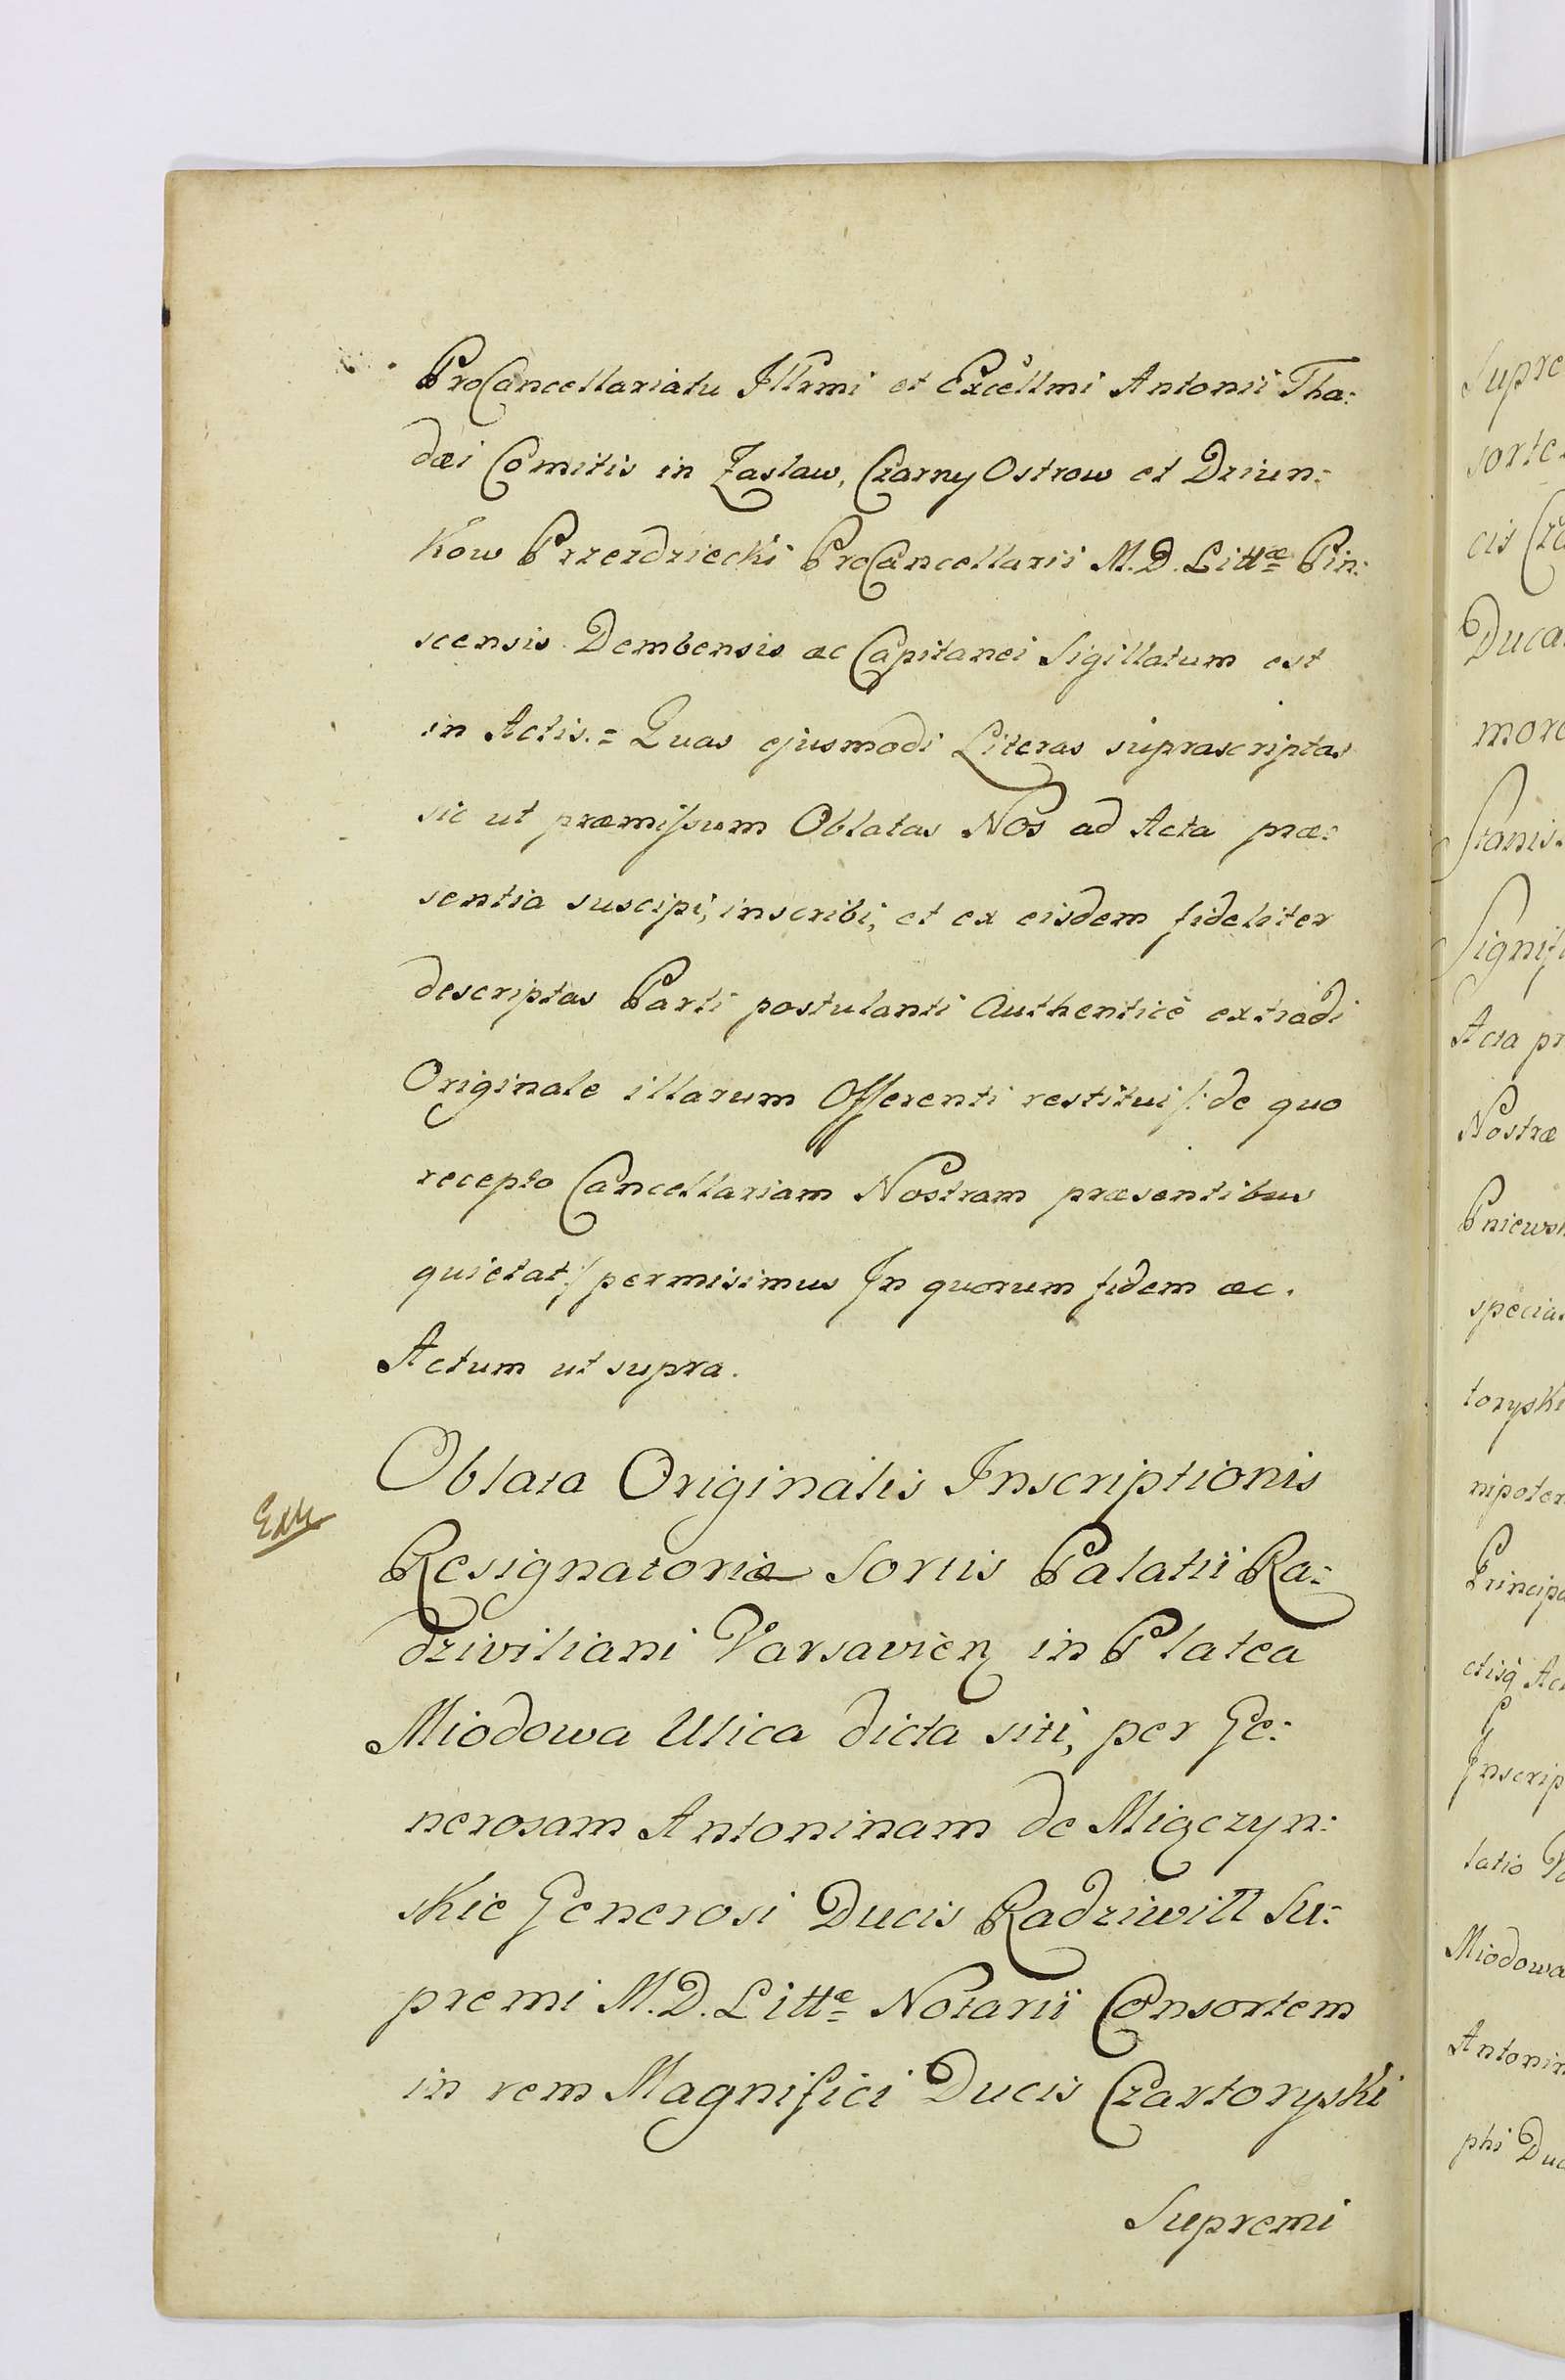 ProCancellariatu Illrmi et Excellmi Antonii Tha:
dæi Comitis in Zasław, Czarny Ostrow et Dziun:
Kow Przezdziecki ProCancellarii M. D. Littæ Pin:
scensis Dembensis ac Capitanei Sigillatum est
in Actis.= Quas ejusmodi Literas suprascriptas
sic ut præmissum Oblatas Nos ad Acta præ:
sentia suscipi, inscribi, et ex eisdem fideliter
descriptas Parti postulanti Authenticè extradi
Originale illarum Offerenti restitui /: de quo
recepto Cancellariam Nostram præsentibus
quietat :/ permisimus In quorum fidem &c.
Actum ut supra.
Oblata Originalis Inscriptionis
Resignatoriæ Sortis Palatii Ra:
dziviliani Varsavien in Platea
Miodowa Ulica dicta siti, per Ge:
nerosam Antoninam de Miączyn:
skie Generosi Ducis Radziwiłł Su:
premi M. D. Litte Notarii Consortem
in rem Magnifici Ducis Czartoryski
Supremi
Supre
sorte
cis Cza
Duca
mor
Stanis
Signifi
Acta pr
Nostræ
Pniewsk
specia
toryski
nipoten
Principa
ctisq Ac
Inscrip
latio Va
Miodowa
Antonin
phi Duc